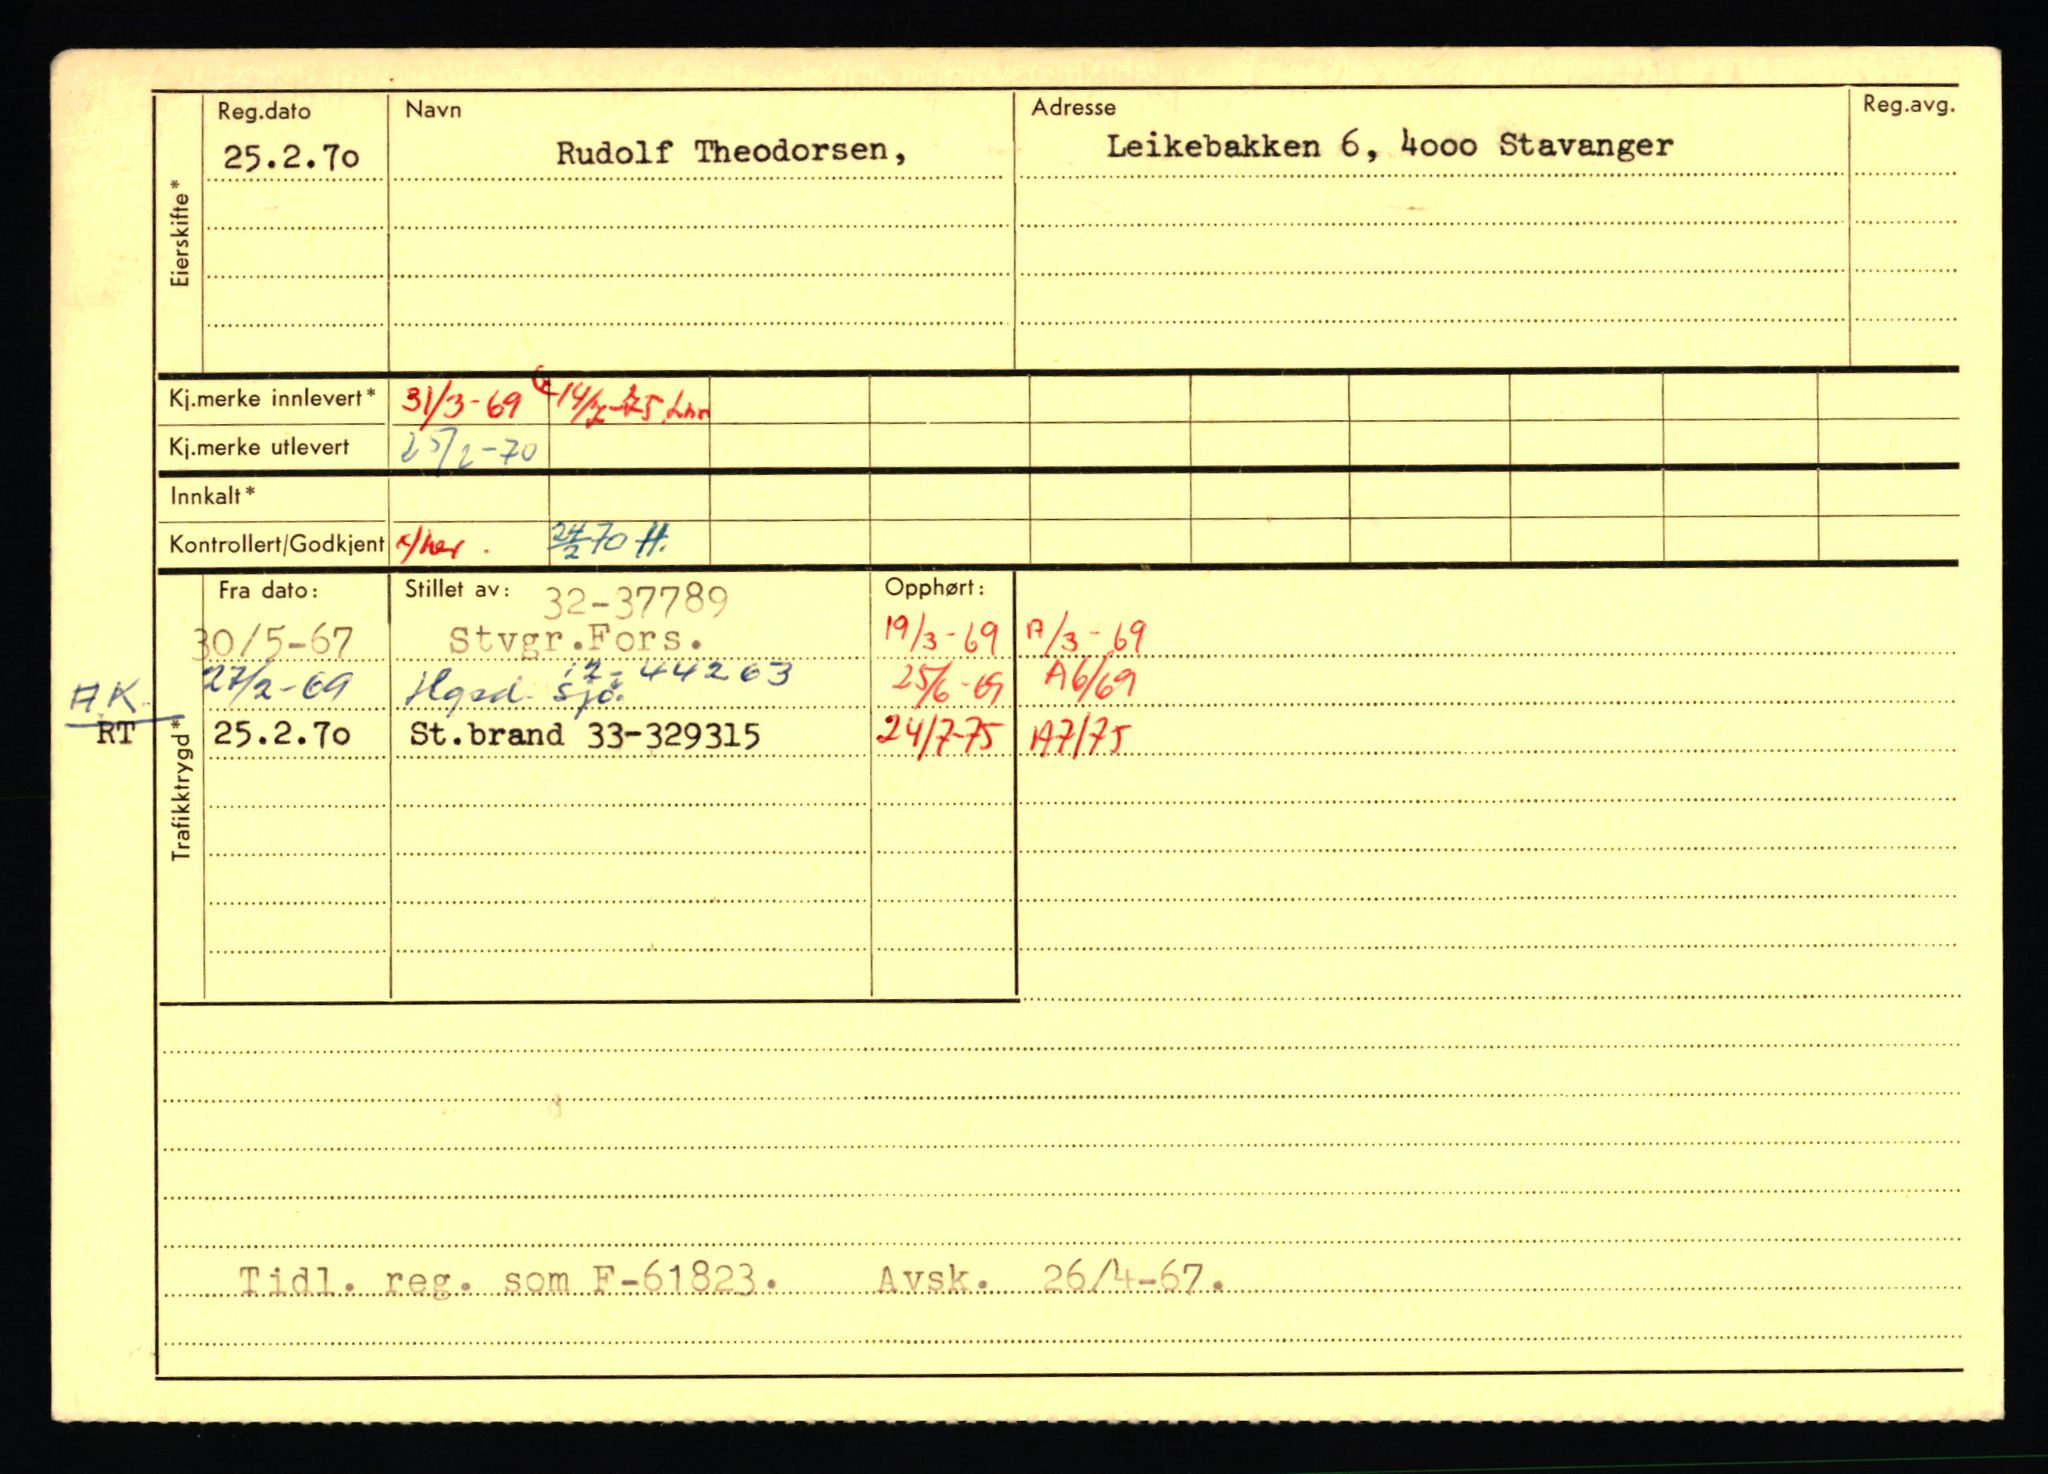 Eierskifte*
Reg.dato Navn Adresse Reg.avg.
25.2.7o Rudolf Theodorsen, Leikebakken 6, 4ooo Stavanger
Kj.merke innlevert* 31/3-69
Kj.merke utlevert 25/2-70
Innkalt*
Kontrollert/Godkjent 24/2-70 H.
Trafikktrygd*
Fra dato: Stillet av: 32-37789 Opphørt:
30/5-67 Stvgr.Fors. 19/3-69 A/3-69
12-44263
27/2-69 Hgsd. Sjø. 25/6-69 A6/69
A.K.
RT 25.2.7o St.brand 33-329315 24/7-75 A7/75
Tidl. reg. som F-61823. Avsk. 26/4-67.